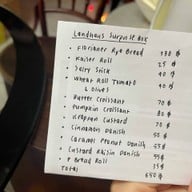 Landhaus Surprise Box
• Florianer Rye Bread 130 ฿
• Kaiser Roll 25 ฿
• Salty Stick 40 ฿
• Wheat Roll Tomato & Olives 40 ฿
• Butter Croissant 70 ฿
• Pumpkin Croissant 80 ฿
• Croissant Custard
• Cinnamon Danish 50 ฿
• Caramel Peanut Danish
• Custard Raisin Danish
• Bread Roll
Total 650 ฿